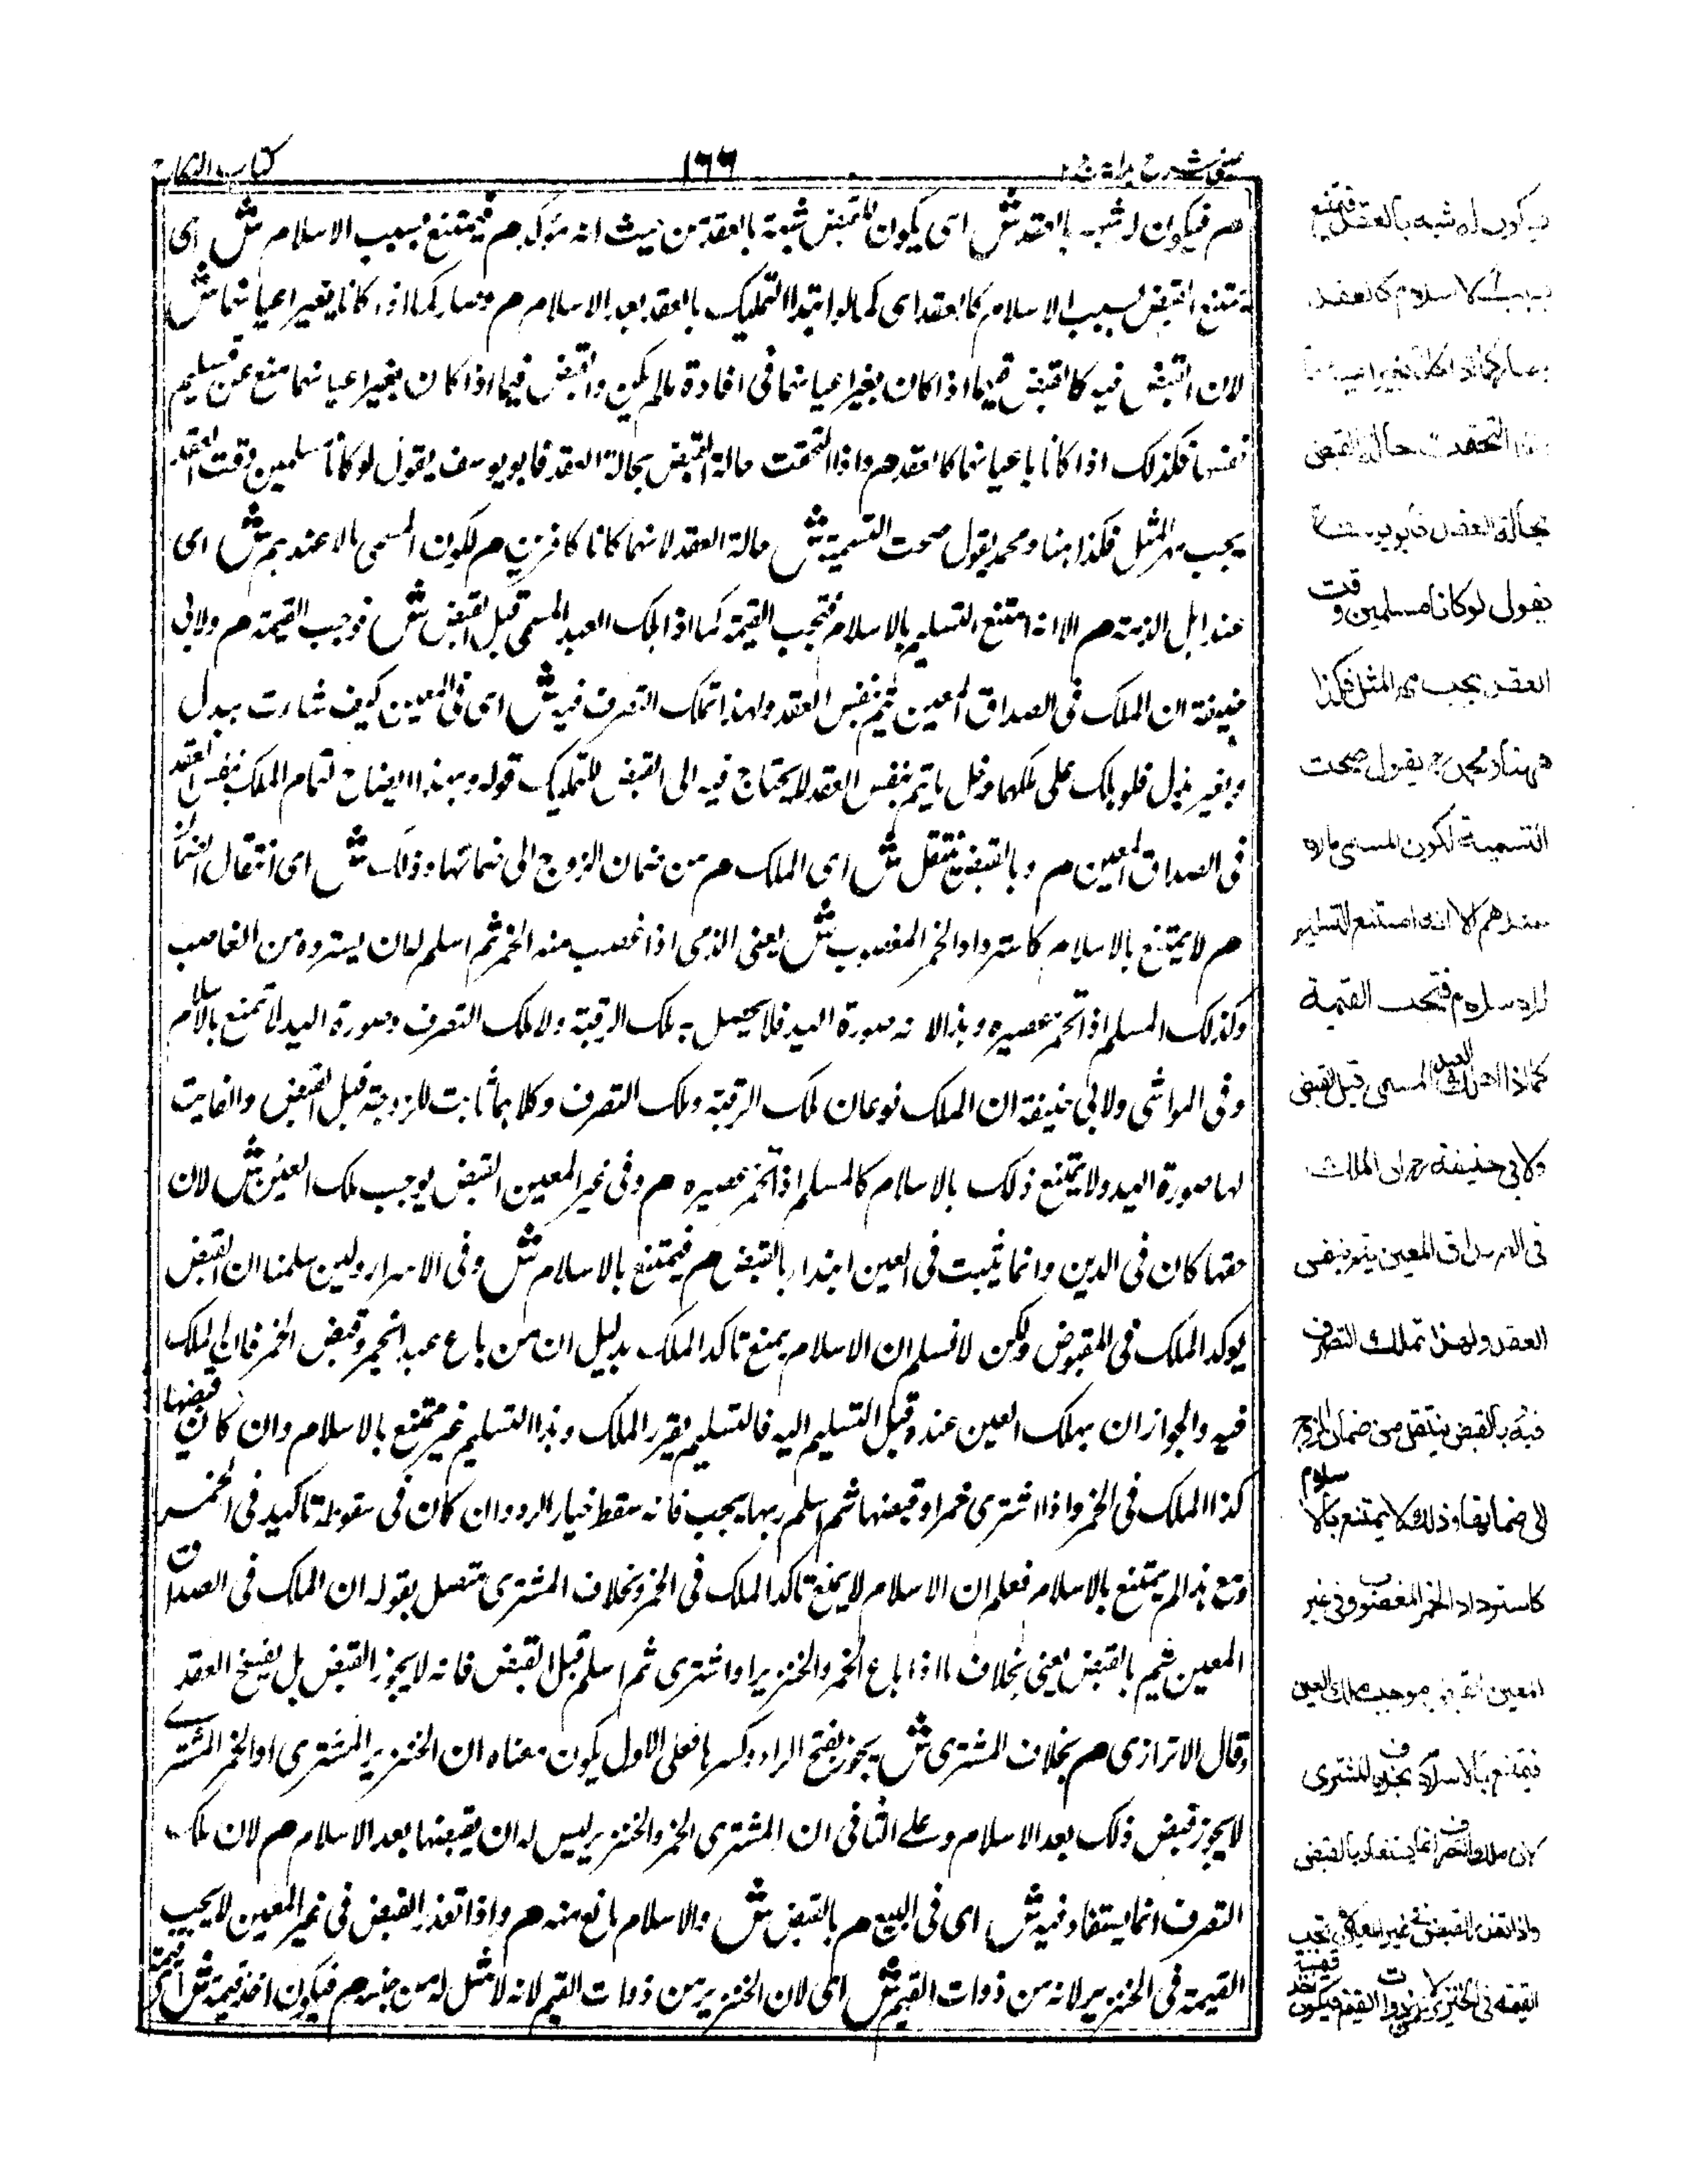 كتاب النكاح
١٦٦
عينى شرح هداية ج ٢
م فيكون له شبه بالعقد ش اى يكون للقبض شبهة بالعقد من حيث انه مؤكد م فيمتنع بسبب الاسلام ش اى
يمتنع القبض بسبب الاسلام كالعقد اى كما لو ابتدا التمليك بالعقد بعد الاسلام م وصار كما اذا كانا بغير اعيانهما ش
لان القبض فيه كالقبض فيما اذا كان بغير اعيانهما فى افادة مالم يكن والقبض فيما اذا كان بغير اعيانهما منع عن تسليم
نفسها فكذلك اذا كانا باعيانهما كالعقد م واذا التحقت حالة القبض بحالة العقد فابو يوسف يقول لو كانا مسلمين وقت العقد
يجب مهر المثل فكذا هنا ومحمد يقول صحت التسمية ش حالة العقد لانهما كانا كافرين م لكون المسمى مالا عندهم ش اى
عند اهل الذمة م الا انه امتنع التسليم بالاسلام فتجب القيمة كما اذا هلك العبد المسمى قبل القبض ش فوجب القيمة م ولابى
حنيفة ان الملك فى الصداق المعين يتم بنفس العقد ولهذا تملك التصرف فيه ش اى فى المعين كيف شاءت ببدل
وبغير بدل فلو هلك هلك على ملكها وكل ما يتم بنفس العقد لا يحتاج فيه الى القبض للتمليك قوله وبهذا ايضاح لتمام الملك بنفس العقد
فى الصداق المعين م وبالقبض ينتقل ش اى الملك م من ضمان الزوج الى ضمانها وذلك ش اى انتقال الضمان
م لا يمتنع بالاسلام كاسترداد الخمر المغصوب ش يعنى الذمى اذا غصب منه الخمر ثم اسلم له ان يسترده من الغاصب
وكذلك المسلم اذا تخمر عصيره وهذا لانه صورة اليد فلا يحصل به ملك الرقبة ولا ملك التصرف وصورة اليد لا تمتنع بالاسلام
وفى الحواشى ولابى حنيفة ان الملك نوعان ملك الرقبة وملك التصرف وكلاهما ثابت للزوجة قبل القبض والفايت
لها صورة اليد ولا يمتنع ذلك بالاسلام كالمسلم اذا تخمر عصيره م وفى غير المعين القبض يوجب ملك العين ش لان
حقها كان فى الدين وانما يثبت فى العين ابتداء بالقبض م فيمتنع بالاسلام ش وفى الاسرار ولئن سلمنا ان القبض
يوكد الملك فى المقبوض ولكن لا نسلم ان الاسلام يمنع تاكد الملك بدليل ان من باع عبدا بخمر وقبض الخمر فان الملك
فيه والجواز ان يهلك العين عنده قبل التسليم اليه فالتسليم يقرر الملك وهذا التسليم غير ممتنع بالاسلام وان كان قبضها
كذا الملك فى الخمر واذا اشترى خمرا وقبضها ثم اسلم ربها يجب فانه سقط خيار الرد وان كان فى سقوطه تاكيد فى الخمر
ومع هذا لم يمتنع بالاسلام فعلم ان الاسلام لا يمنع تاكد الملك فى الخمر وبخلاف المشترى متصل بقوله ان الملك فى الصداق
المعين فيتم بالقبض يعنى بخلاف ما اذا باع الخمر والخنزير او اشترى ثم اسلم قبل القبض فانه لا يجوز القبض بل يفسخ العقد
وقال الاترازى م بخلاف المشترى ش يجوز بفتح الراء وكسرها فعلى الاول يكون معناه ان الخنزير المشترى او الخمر المشترى
لا يجوز قبض ذلك بعد الاسلام وعلى الثانى ان المشترى الخمر والخنزير ليس له ان يقبضها بعد الاسلام م لان ملك
التصرف انما يستفاد فيه ش اى فى البيع م بالقبض ش والاسلام مانع منه م واذا تعذر القبض فى غير المعين لا يجب
القيمة فى الخنزير لانه من ذوات القيم ش اى لان الخنزير من ذوات القيم لانه لا مثل له من جنسه م فيكون اخذ قيمته ش اى قيمة
فيكون له شبه بالعقد فيمتنع
بسبب الاسلام كالعقد
وصار كما اذا كانا بغير اعيانهما
واذا التحقت حالة القبض
بحالة العقد فابو يوسف
يقول لو كانا مسلمين وقت
العقد يجب مهر المثل فكذا
ههنا ومحمد رح يقول صحت
التسمية لكون المسمى مالا
عندهم الا انه امتنع التسليم
للاسلام فتجب القيمة
كما اذا هلك العبد المسمى قبل القبض
ولابى حنيفة رح ان الملك
فى الصداق المعين يتم بنفس
العقد ولهذا تملك التصرف
فيه بالقبض ينتقل من ضمان الزوج
الى ضمانها وذلك لا يمتنع بالاسلام
كاسترداد الخمر المغصوب وفى غير
المعين القبض يوجب ملك العين
فيمتنع بالاسلام بخلاف المشترى
لان ملك التصرف انما يستفاد بالقبض
واذا تعذر القبض فى غير المعين لا تجب
القيمة فى الخنزير لانه من ذوات القيم فيكون اخذ قيمته